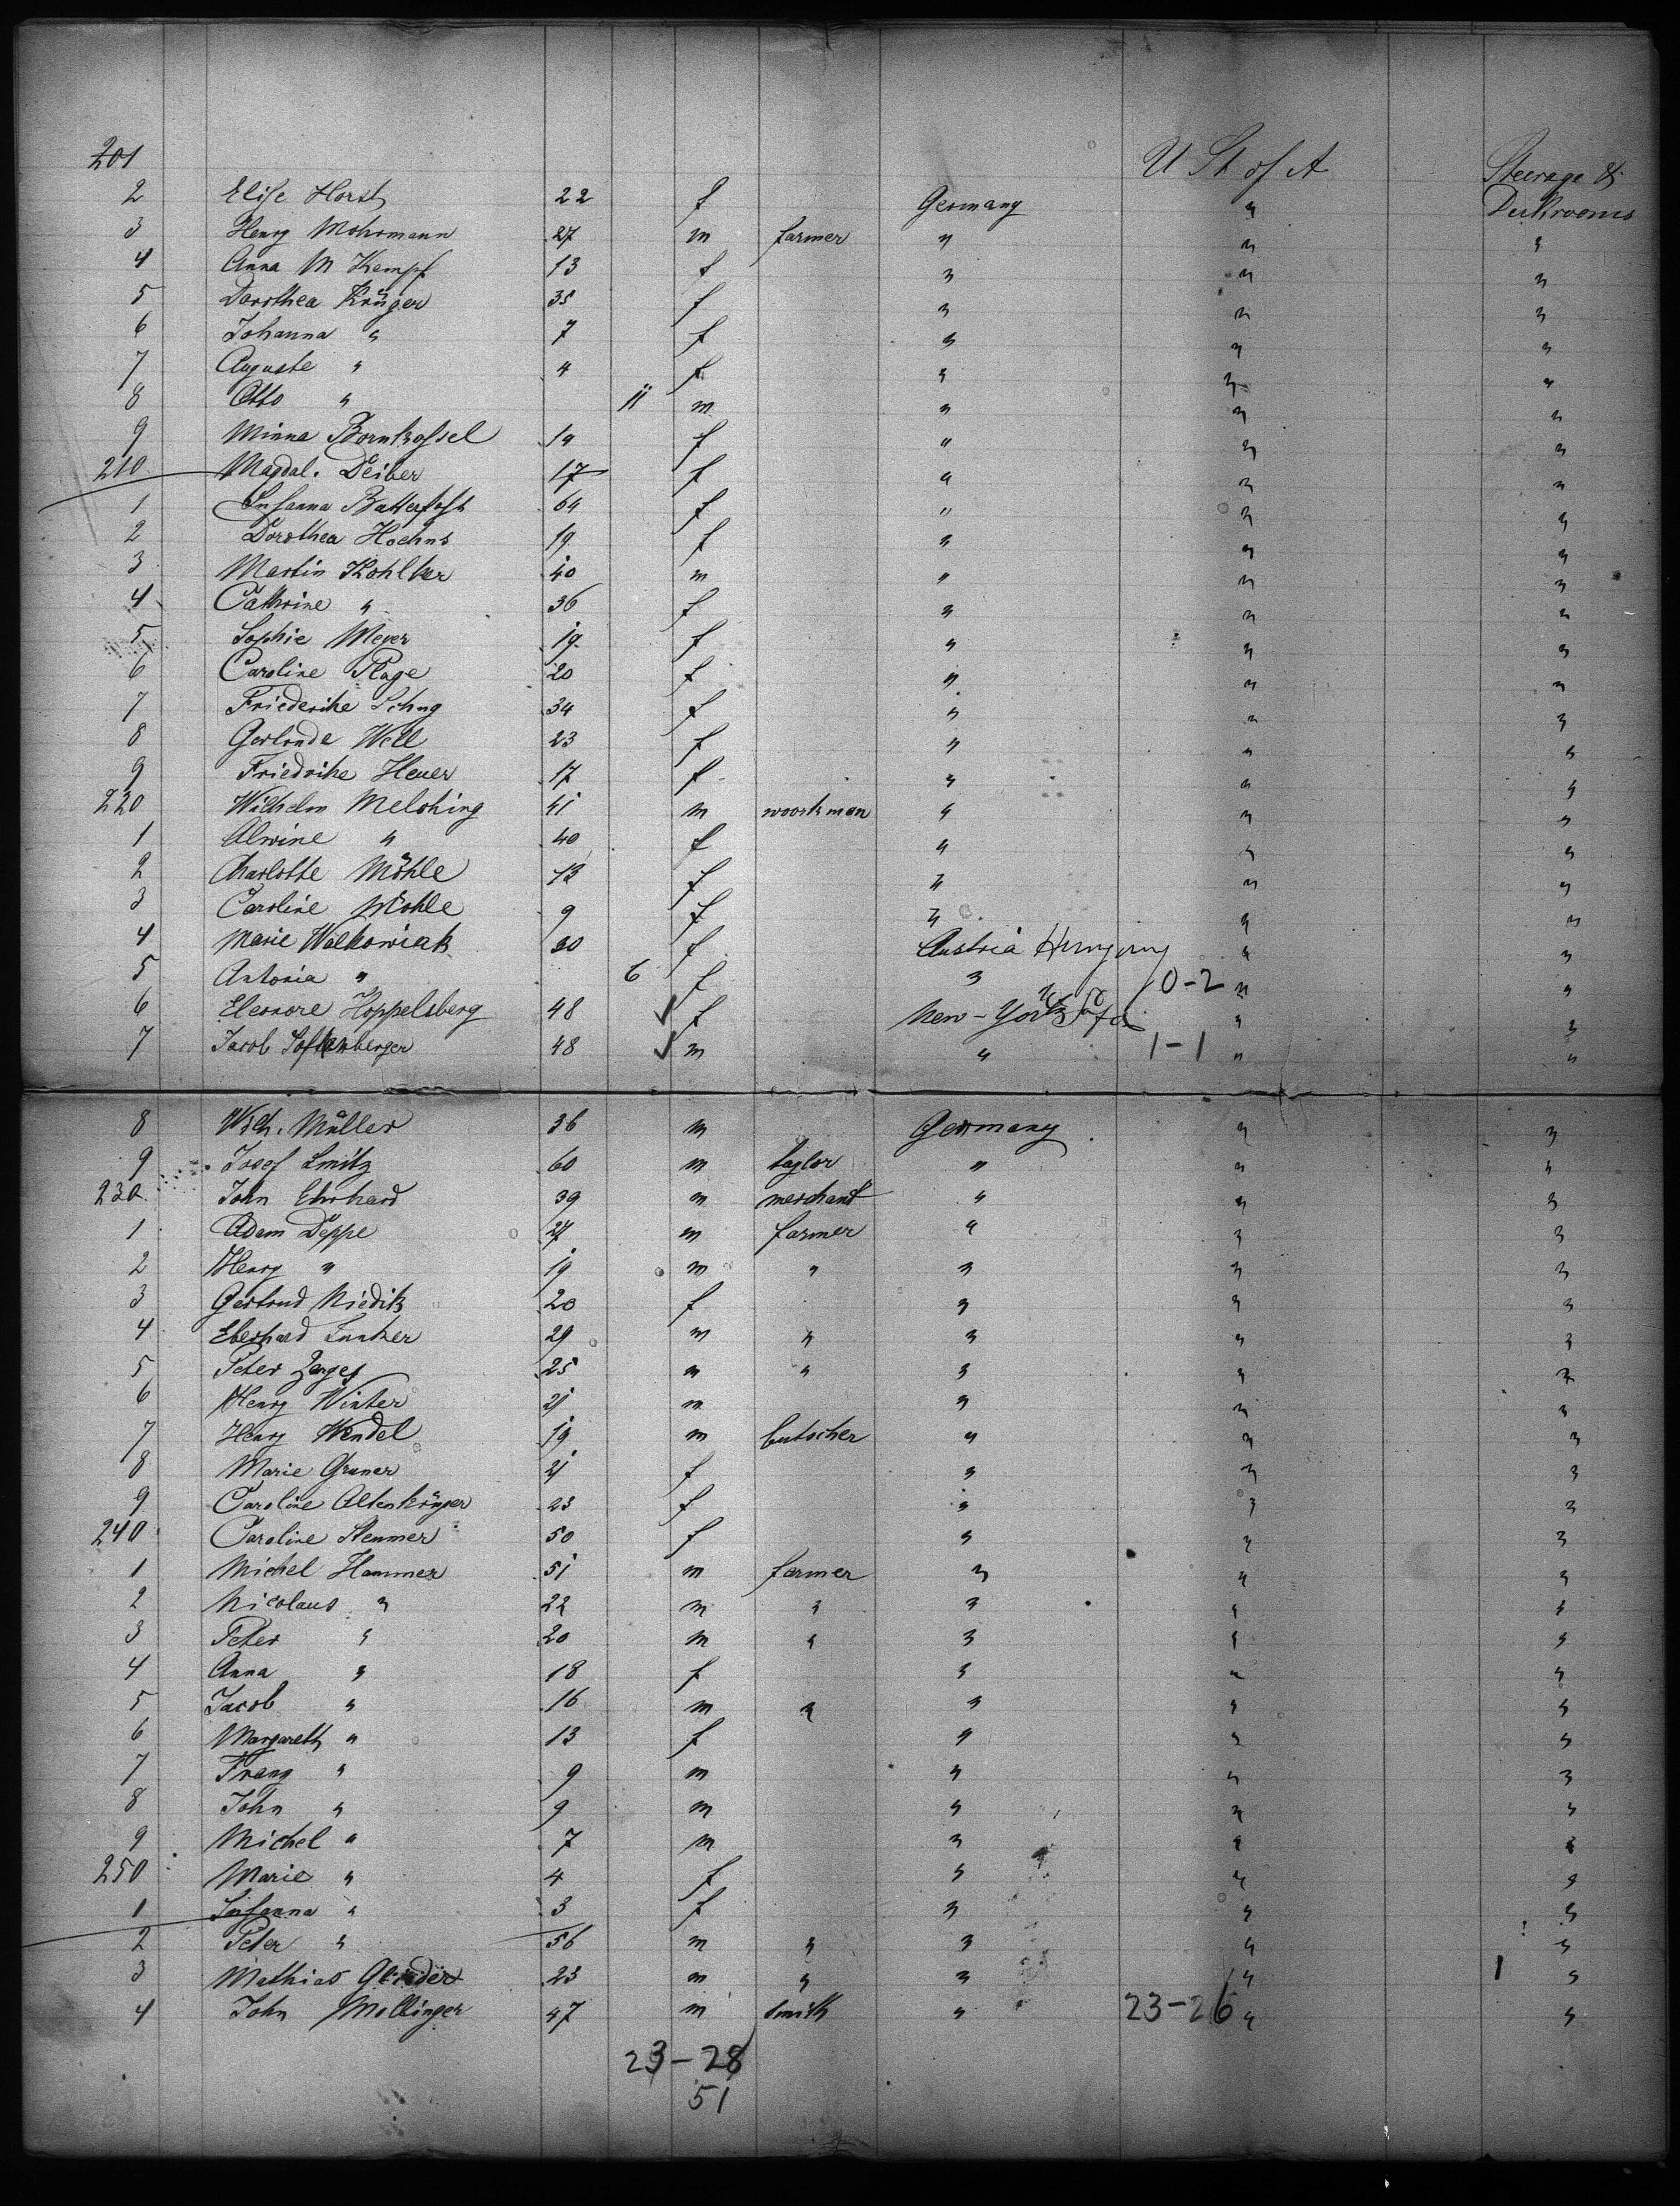 201 U St of A Steerage &
2 Elise Horst 22 f Germany " Deckrooms
3 Henry Mohrmann 27 m farmer " " "
4 Anna M Kempf 13 f " " "
5 Dorothea Krüger 35 f " " "
6 Johanna " 7 f " " "
7 Auguste " 4 f " " "
8 Otto " 11 m " " "
9 Minna Bornkossel 19 f " " "
210 Magdal. Deiber 17 f " " "
1 Susanna 64 f " " "
2 Dorothea Hoehns 19 f " " "
3 Martin Kohlker 40 m " " "
4 Cathrine " 36 f " " "
5 Sophie Meyer 19 f " " "
6 Caroline Plage 20 f " " "
7 Friederike Schug 34 f " " "
8 Well 23 f " " "
9 Friedrike Heuer 17 f " " "
220 Wilhelm Melching 41 m woorkman " " "
1 Alwine " 40 f " " "
2 Charlotte Möhle 13 f " " "
3 Caroline Möhle 9 f " " "
4 Marie Walkowiak 30 f Austria Hungary " "
5 Antonia " 6 f " 0-2 " "
6 Eleonore Hoppelsberg 48 f New-York " "
7 Jacob 48 m " 1-1 " "
8 Wilh. Müller 36 m Germany " "
9 Josef Smitz 60 m taylor " " "
230 John Ehrhard 39 m merchant " " "
1 Adam Deppe 27 m farmer " " "
2 Henry " 19 m " " " "
3 Gertrud Niedik 20 f " " "
4 Eberhard Lunker 29 m " " " "
5 Peter Zerges 25 m " " " "
6 Henry Winter 21 m " " "
7 Henry Wendel 19 m butscher " " "
8 Marie Gruner 21 f " " "
9 Caroline Altenkrüger 23 f " " "
240 Caroline Stemmer 50 f " " "
1 Michel Hammer 51 m farmer " " "
2 Nicolaus " 22 m " " " "
3 Peter " 20 m " " " "
4 Anna " 18 f " " "
5 Jacob " 16 m " " " "
6 Margareth " 13 f " " "
7 Franz " 9 m " " "
8 John " 9 m " " "
9 Michel " 7 m " " "
250 Marie " 4 f " " "
1 Susanna " 3 f " " "
2 Peter " 56 m " " " "
3 Mathias Glieder 23 m " " " 1 "
4 John Mollinger 47 m smith " 23-26 " "
23-28
51